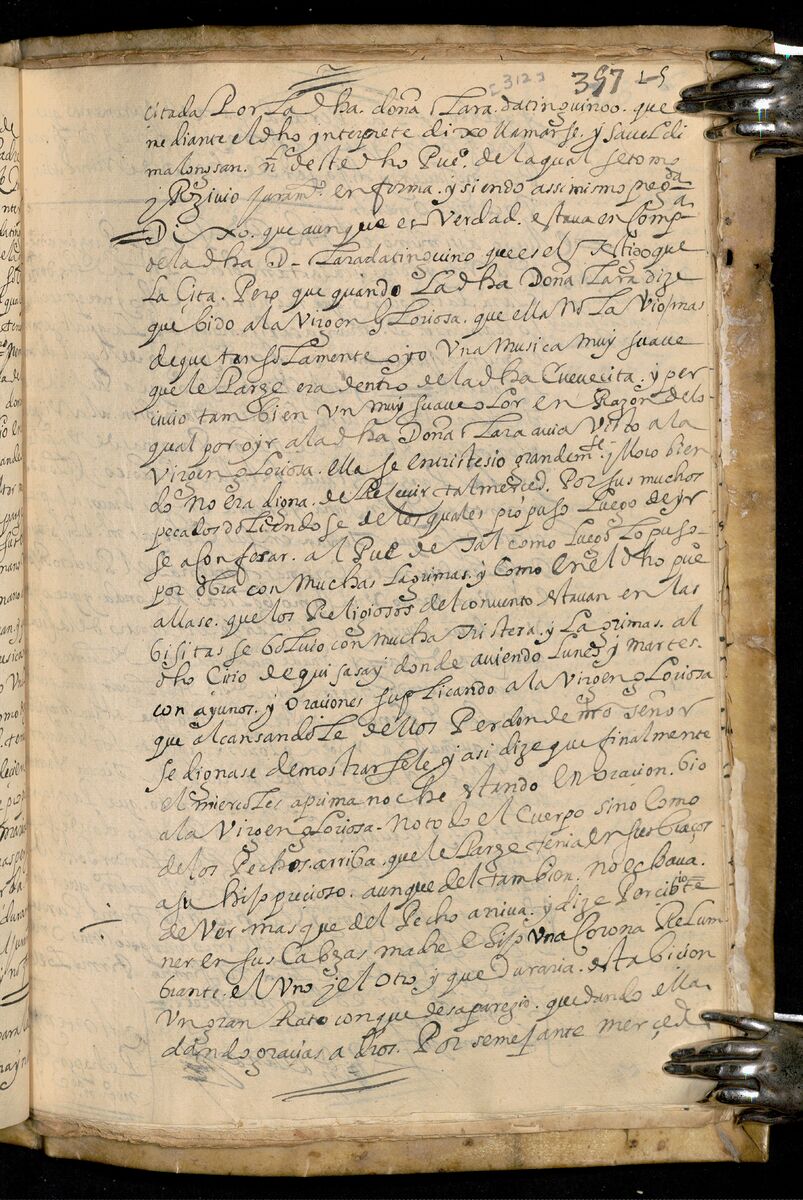 [312] 397 L5
citada Por La dha. doña Clara. datinguinoo. que
mediante el dho ynterpete dixo llamarse. ysavel di
malonosan. nl de este dho Pueº. de la qual se tomo
y Reziuio juramto. en forma. y siendo assimismo pregda
Dixo. que aunque es Verdad. estaua en Compa
de la dha Da Clara datinguino que es el Testigo que
La Cita. Pero que quando La dha Doña Clara dize
que bido a la Virgen gLoriosa. que ella no La Vio mas
de que tan soLamente oyo Vna Musica muy suaue
que le Pareze era dentro de la dha Cuevecita. y per
ciuio tambien Vn muy suaue oLor en Razon de lo
qual por oyr a la dha Doña Clara auia Visto a la
Virgen gLoriosa. ella se entristesio grandemte. y lloro bien
do No era digna. de Reseuir tal merced. Por sus muchos
pecados doLiendose de los quales propuso Luego de yr
se a confesar. al Pueº de Jal como Luego Lo puso
por obra con Muchas Lagrimas. y Como en el dho pueº
allase. que los Religiosos del conuento estauan en las
bisitas se boLuio con mucha tristeza. y Lagrimas. al
dho Citio de quisasay donde auiendo Lunes y martes.
con ayunos. y oraciones supLicando a la Virgen gLoriosa
que alcansandoLe de llos Perdon de nro señor
se dignase demostrarsele. y asi dize que finalmente
el miercoLes a prima noche estando en oracion. bio
a la Virgen gLoriosa. No todo el Cuerpo sino Como
de los Pechos. arriba. que le Pareze tenia en sus braços
a su hijo precioso. aunque del tambien. no echaua.
de Ver mas que del Pecho arriua. y dize Percibio te
ner en sus Cabezas madre e hijo Vna Corona ReLum
brante. el Vno y el otro y que Duraria. esta bicion
Vn gran Rato con que desaparezio. quedando ella
dando gracias a Dios. Por semejante merçed